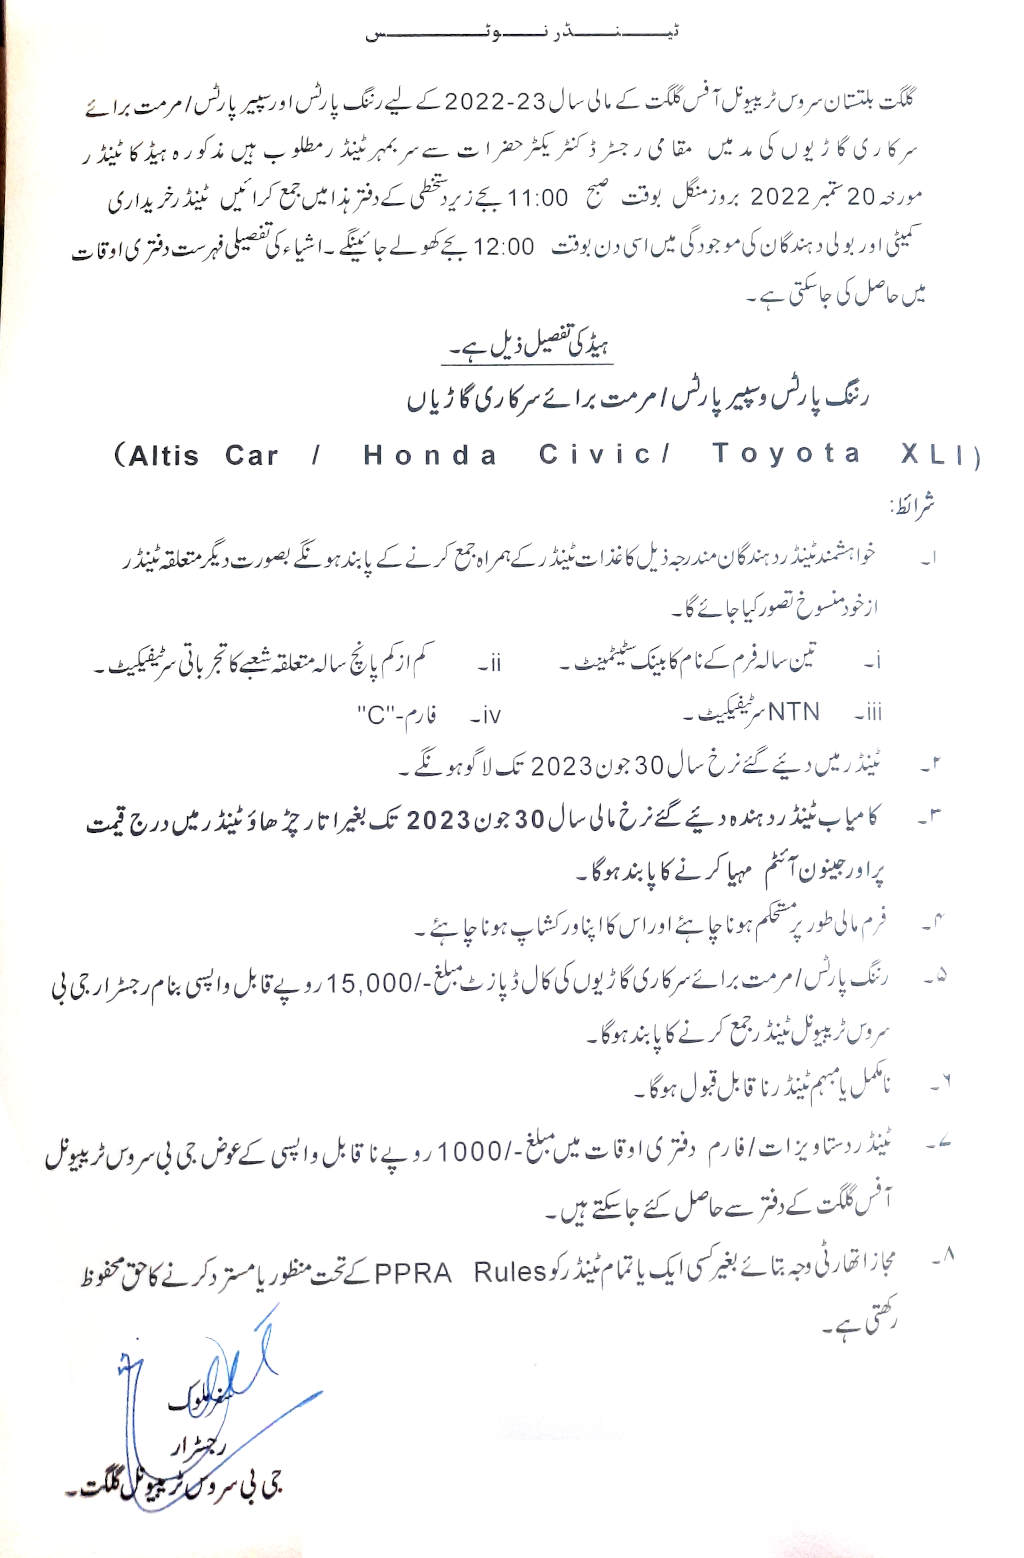 ٹینڈر نوٹس
گلگت بلتستان سروس ٹریبیونل آفس گلگت کے مالی سال 23-2022 کے لیے رننگ پارٹس اور سپیر پارٹس/مرمت برائے
سرکاری گاڑیوں کی مد میں مقامی رجسٹرڈ کنٹریکٹر حضرات سے سربمہر ٹینڈر مطلوب ہیں مذکورہ ہیڈ کا ٹینڈر
مورخہ 20 ستمبر 2022 بروز منگل بوقت صبح 11:00 بجے زیر دستخطی کے دفتر ہذا میں جمع کرائیں ٹینڈر خریداری
کمیٹی اور بولی دہندگان کی موجودگی میں اسی دن بوقت 12:00 بجے کھولے جائینگے۔ اشیاء کی تفصیلی فہرست دفتری اوقات
میں حاصل کی جاسکتی ہے۔
ہیڈ کی تفصیل ذیل ہے۔
رننگ پارٹس و سپیر پارٹس/مرمت برائے سرکاری گاڑیاں
(Altis Car / Honda Civic/ Toyota XLI)
شرائط:
۱۔ خواہشمند ٹینڈر دہندگان مندرجہ ذیل کاغذات ٹینڈر کے ہمراہ جمع کرنے کے پابند ہونگے بصورت دیگر متعلقہ ٹینڈر
از خود منسوخ تصور کیا جائے گا۔
i۔ تین سالہ فرم کے نام کا بینک سٹیٹمینٹ۔ ii۔ کم از کم پانچ سالہ متعلقہ شعبے کا تجرباتی سرٹیفیکیٹ۔
iii۔ NTN سرٹیفیکیٹ۔ iv۔ فارم-"C"
۲۔ ٹینڈر میں دیئے گئے نرخ سال 30 جون 2023 تک لاگو ہونگے۔
۳۔ کامیاب ٹینڈر دہندہ دیئے گئے نرخ مالی سال 30 جون 2023 تک بغیر اتار چڑھاؤ ٹینڈر میں درج قیمت
پر اور جینون آئٹم مہیا کرنے کا پابند ہوگا۔
۴۔ فرم مالی طور پر مستحکم ہونا چاہئے اور اس کا اپنا ورکشاپ ہونا چاہئے۔
۵۔ رننگ پارٹس/مرمت برائے سرکاری گاڑیوں کی کال ڈپازٹ مبلغ -/15,000 روپے قابل واپسی بنام رجسٹرار جی بی
سروس ٹریبیونل ٹینڈر جمع کرنے کا پابند ہوگا۔
۶۔ نامکمل یا مبہم ٹینڈر ناقابل قبول ہوگا۔
۷۔ ٹینڈر دستاویزات/فارم دفتری اوقات میں مبلغ -/1000 روپے ناقابل واپسی کے عوض جی بی سروس ٹریبیونل
آفس گلگت کے دفتر سے حاصل کئے جاسکتے ہیں۔
۸۔ مجاز اتھارٹی وجہ بتائے بغیر کسی ایک یا تمام ٹینڈر کو PPRA Rules کے تحت منظور یا مسترد کرنے کا حق محفوظ
رکھتی ہے۔
رجسٹرار
جی بی سروس ٹریبیونل گلگت۔